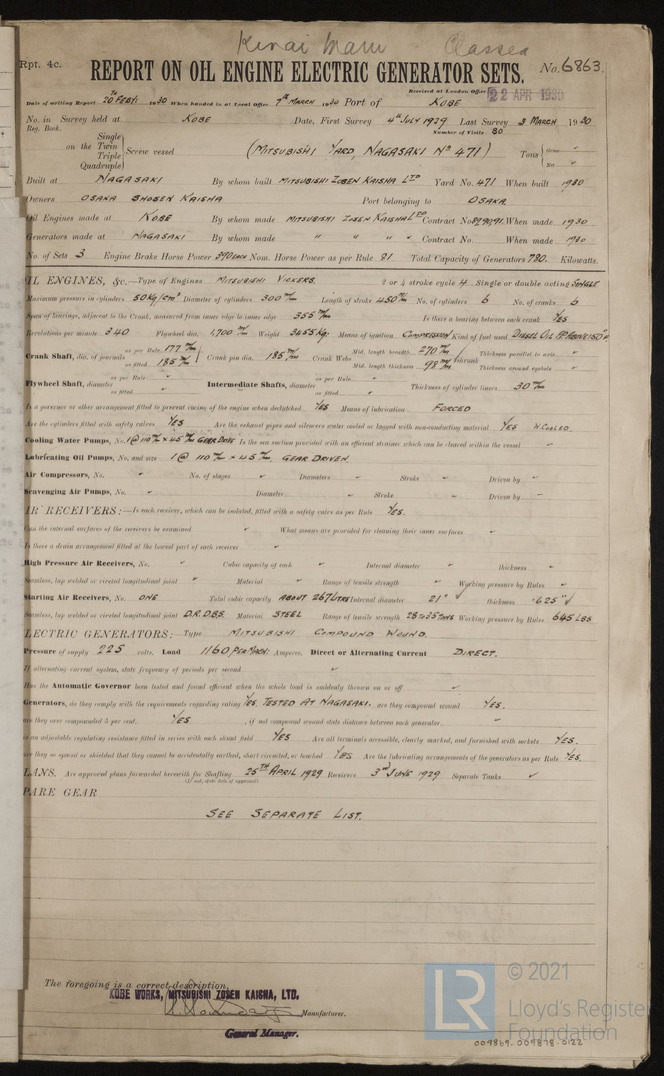 Kinai Maru Classed
Rpt. 4c.
REPORT ON OIL ENGINE ELECTRIC GENERATOR SETS. No. 6863.
Received at London Office 22 APR 1930
Date of writing Report 20 FEBY 1930 When handed in at Local Office 7th MARCH 1930 Port of KOBE
No. in Reg. Book. Survey held at KOBE Date, First Survey 4th JULY 1929 Last Survey 3 MARCH 1930
Number of Visits 80
Single
on the Twin Screw vessel (MITSUBISHI YARD, NAGASAKI No 471) Tons Gross "
Triple
Quadruple Net "
Built at NAGASAKI By whom built MITSUBISHI ZOSEN KAISHA LTD Yard No. 471 When built 1930
Owners OSAKA SHOSEN KAISHA Port belonging to OSAKA.
Oil Engines made at KOBE By whom made MITSUBISHI ZOSEN KAISHA LTD Contract No. When made 1930
Generators made at NAGASAKI By whom made " " " " Contract No. When made 1930
No. of Sets 3 Engine Brake Horse Power 390 EACH Nom. Horse Power as per Rule 81 Total Capacity of Generators 780. Kilowatts.
OIL ENGINES, &c.—Type of Engines MITSUBISHI VICKERS. 2 or 4 stroke cycle 4 Single or double acting SINGLE
Maximum pressure in cylinders 50 kg/cm² Diameter of cylinders 300 m/m Length of stroke 450 m/m No. of cylinders 6 No. of cranks 6
Span of bearings, adjacent to the Crank, measured from inner edge to inner edge 355 m/m Is there a bearing between each crank YES
Revolutions per minute 340 Flywheel dia. 1,700 m/m Weight 3455 kg. Means of ignition COMPRESSION Kind of fuel used DIESEL OIL FP ABOVE 150°F
Crank Shaft, dia. of journals as per Rule 177 m/m as fitted 185 m/m Crank pin dia. 185 m/m Crank Webs Mid. length breadth 270 m/m Mid. length thickness 98 m/m shrunk Thickness parallel to axis " Thickness around eyehole "
Flywheel Shaft, diameter as per Rule " as fitted " Intermediate Shafts, diameter as per Rule " as fitted " Thickness of cylinder liners 30 m/m
Is a governor or other arrangement fitted to prevent racing of the engine when declutched YES Means of lubrication FORCED
Are the cylinders fitted with safety valves YES Are the exhaust pipes and silencers water cooled or lagged with non-conducting material YES W. COOLED.
Cooling Water Pumps, No. 1 @ 110 m/m × 45 m/m GEAR DRIVE Is the sea suction provided with an efficient strainer which can be cleared within the vessel "
Lubricating Oil Pumps, No. and size 1 @ 110 m/m × 45 m/m, GEAR DRIVEN.
Air Compressors, No. " No. of stages " Diameters " Stroke " Driven by "
Scavenging Air Pumps, No. " Diameter " Stroke " Driven by "
AIR RECEIVERS:—Is each receiver, which can be isolated, fitted with a safety valve as per Rule YES.
Can the internal surfaces of the receivers be examined " What means are provided for cleaning their inner surfaces "
Is there a drain arrangement fitted at the lowest part of each receiver "
High Pressure Air Receivers, No. " Cubic capacity of each " Internal diameter " thickness "
Seamless, lap welded or riveted longitudinal joint " Material " Range of tensile strength " Working pressure by Rules "
Starting Air Receivers, No. ONE Total cubic capacity ABOUT 267 LITRES Internal diameter 21" ✓ thickness ·625" ✓
Seamless, lap welded or riveted longitudinal joint D.R.D.B.S. Material STEEL Range of tensile strength 28 to 35 TONS Working pressure by Rules 645 LBS
ELECTRIC GENERATORS:—Type MITSUBISHI COMPOUND WOUND.
Pressure of supply 225 volts. Load 1160 PER MACH: Amperes. Direct or Alternating Current DIRECT.
If alternating current system, state frequency of periods per second "
Has the Automatic Governor been tested and found efficient when the whole load is suddenly thrown on or off "
Generators, do they comply with the requirements regarding rating YES, TESTED AT NAGASAKI. are they compound wound YES.
are they over compounded 5 per cent. YES , if not compound wound state distance between each generator "
is an adjustable regulating resistance fitted in series with each shunt field YES Are all terminals accessible, clearly marked, and furnished with sockets YES.
are they so spaced or shielded that they cannot be accidentally earthed, short circuited, or touched YES Are the lubricating arrangements of the generators as per Rule YES.
PLANS. Are approved plans forwarded herewith for Shafting 25TH APRIL 1929 Receivers 3rd JUNE 1929 Separate Tanks ✓
(If not, state date of approval)
SPARE GEAR
SEE SEPARATE LIST.
The foregoing is a correct description,
KOBE WORKS, MITSUBISHI ZOSEN KAISHA, LTD.
Manufacturer.
General Manager.
LR © 2021
Lloyd's Register
Foundation
009869-009878-0122